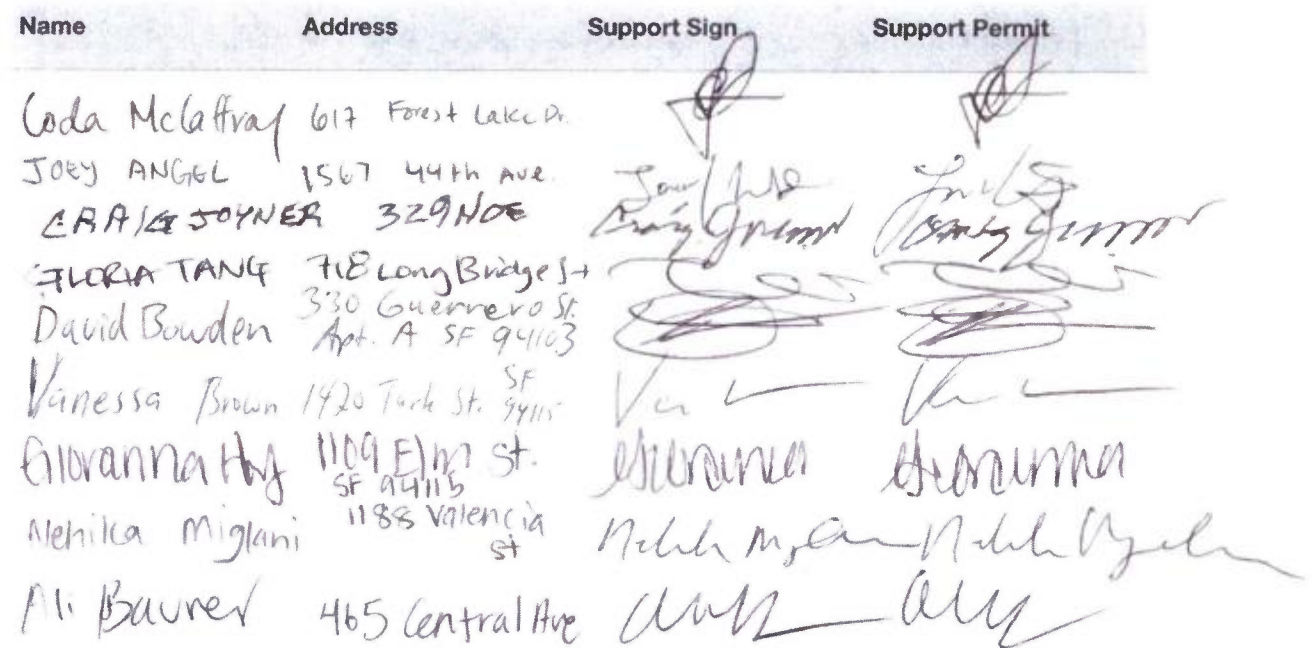 Name Address Support Sign Support Permit
Coda McCaffray 617 Forest Lake Dr.
JOEY ANGEL 1567 44th Ave.
CRAIG JOYNER 329 NOE Craig Joyner
GLORIA TANG 718 Long Bridge St
David Bowden 330 Guerrero St.
Apt. A SF 94103
Vanessa Brown 1420 Turk St. SF
94115
Giovanna 1109 Elm St. Giovanna Giovanna
SF 94115
Nehika Miglani 1188 Valencia
st
Ali Baurer 465 Central Ave